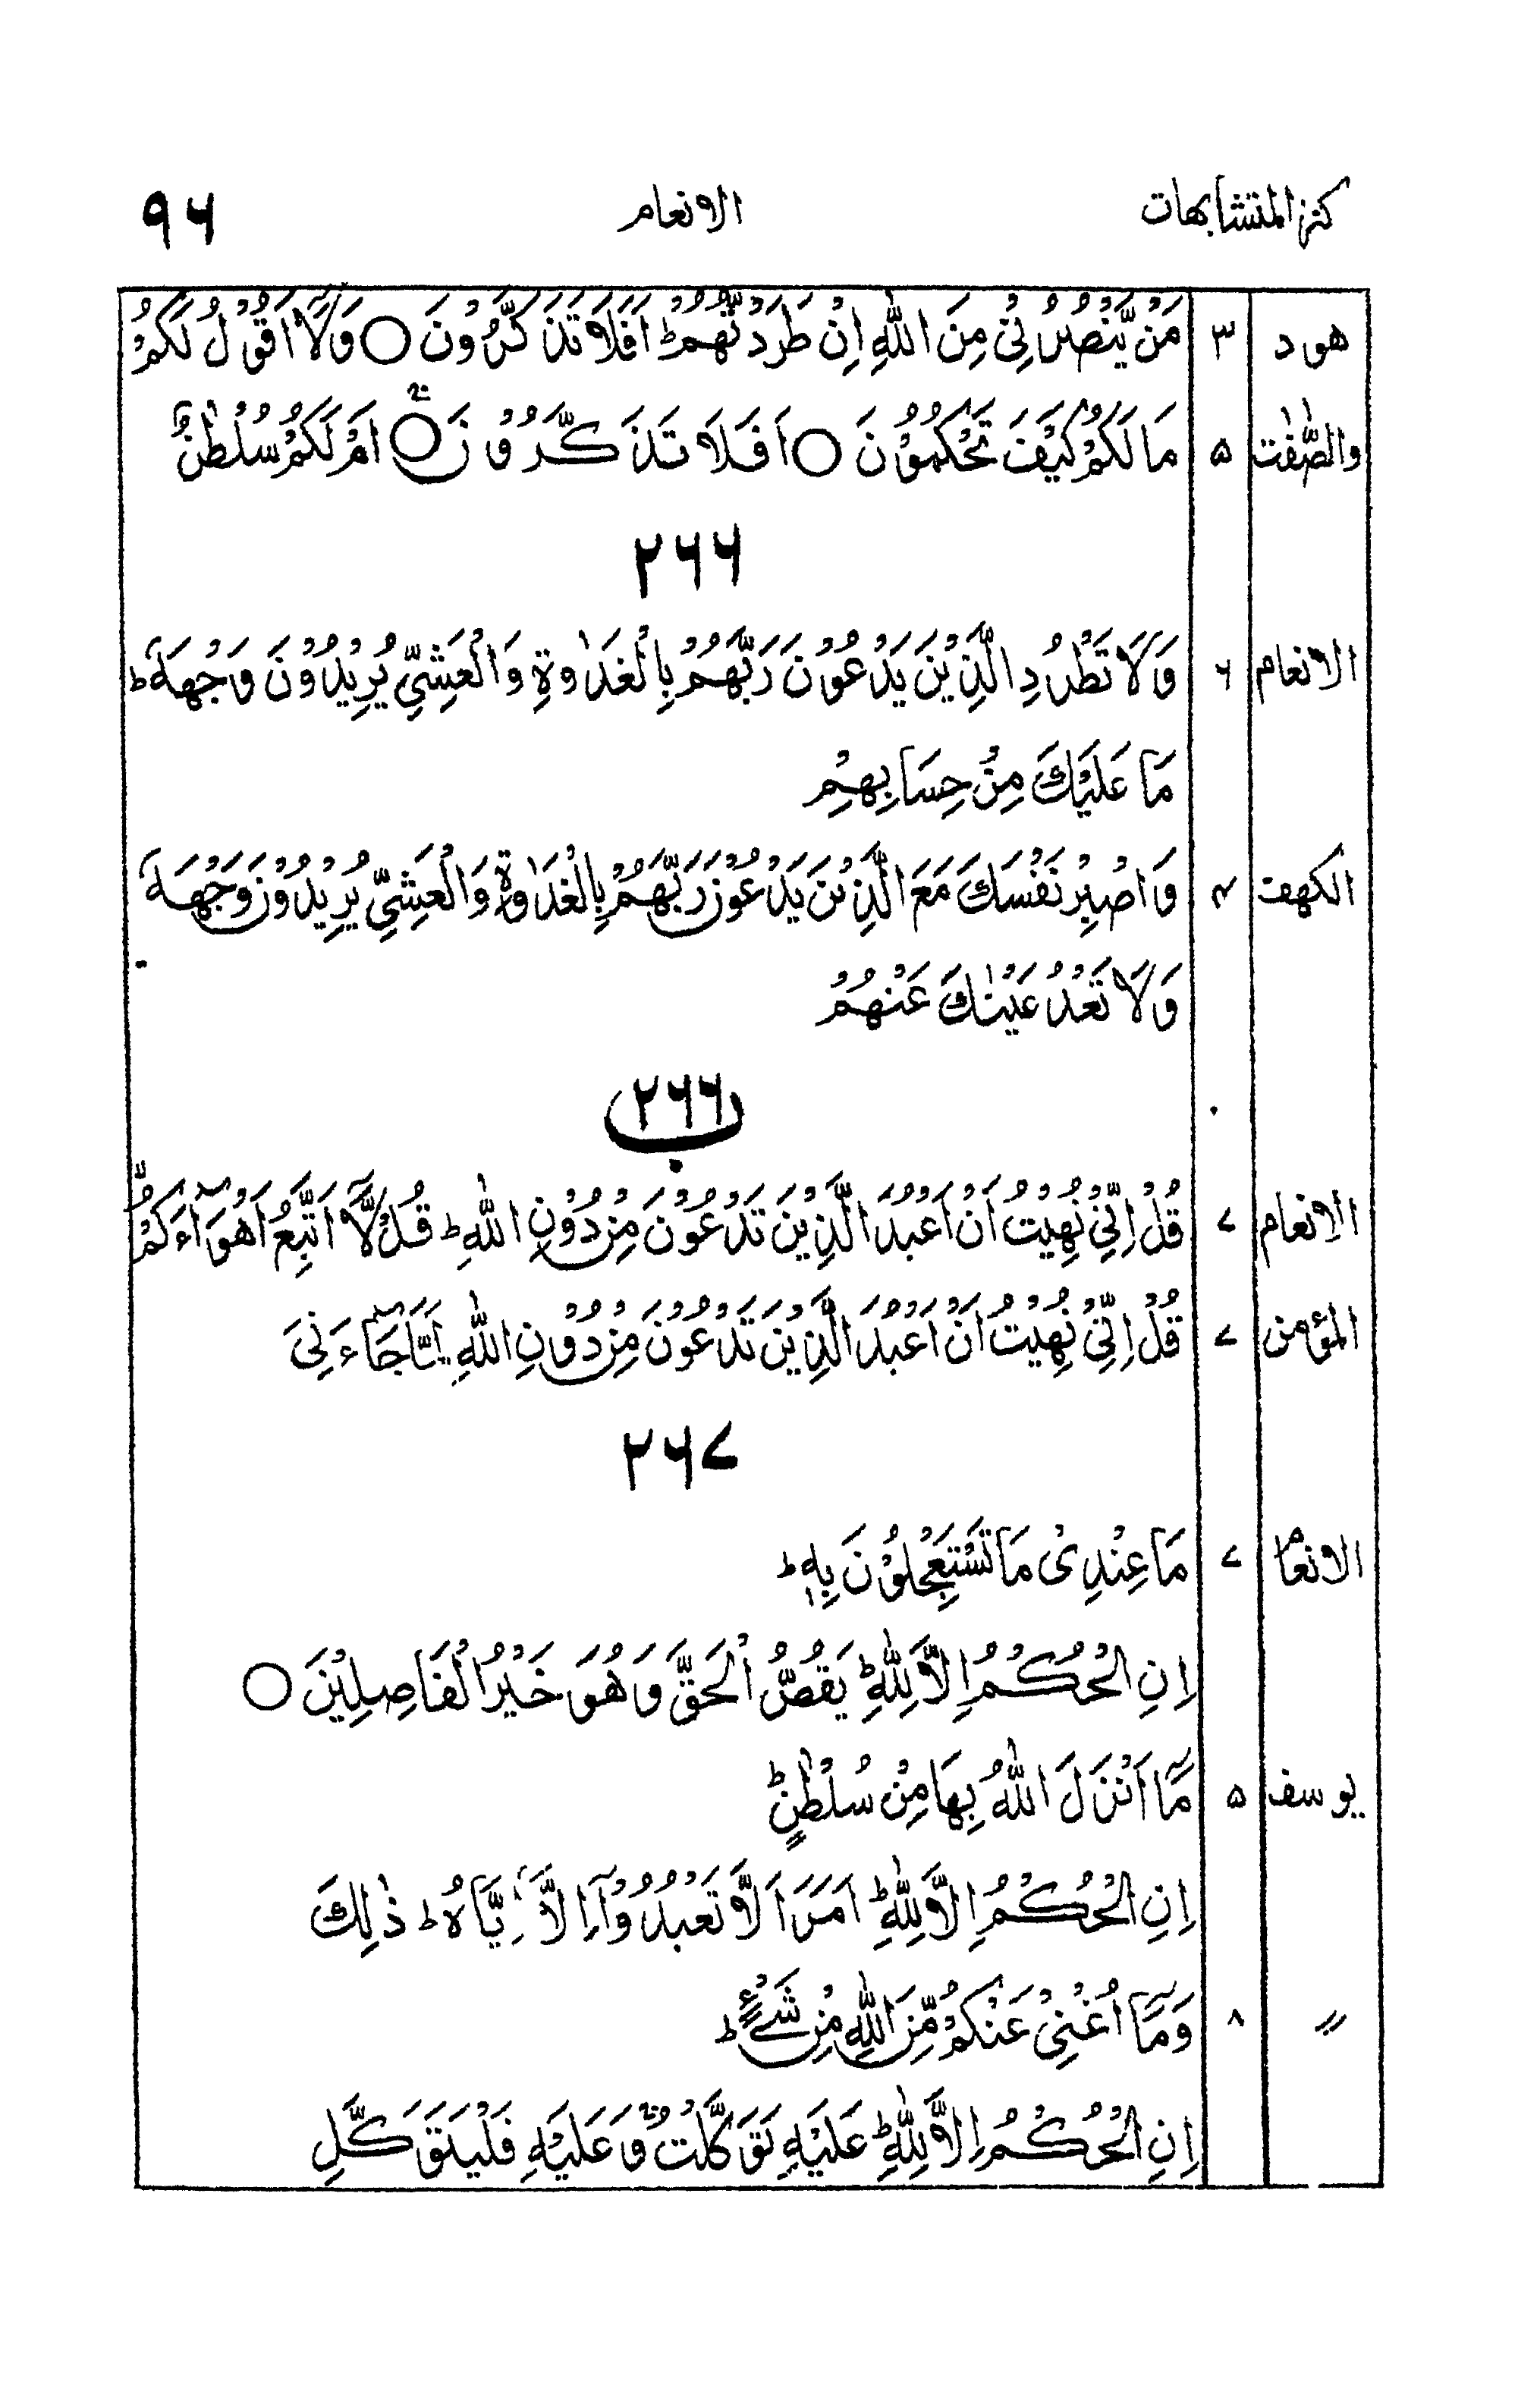 كنز المتشابهات الانعام ٩٦
هود ٣ مَنْ يَّنْصُرُنِيْ مِنَ اللّٰهِ اِنْ طَرَدْتُّهُمْ ؕ اَفَلَا تَذَكَّرُوْنَ ○ وَلَاۤ اَقُوْلُ لَكُمْ
والصّٰفّٰت ۵ مَا لَكُمْ كَيْفَ تَحْكُمُوْنَ ○ اَفَلَا تَذَكَّرُوْنَ ○ۚ اَمْ لَكُمْ سُلْطٰنٌ
٢٦٦
الانعام ٦ وَلَا تَطْرُدِ الَّذِيْنَ يَدْعُوْنَ رَبَّهُمْ بِالْغَدٰوةِ وَالْعَشِيِّ يُرِيْدُوْنَ وَجْهَهٗ ؕ
مَا عَلَيْكَ مِنْ حِسَابِهِمْ
الكهف ۴ وَاصْبِرْ نَفْسَكَ مَعَ الَّذِيْنَ يَدْعُوْنَ رَبَّهُمْ بِالْغَدٰوةِ وَالْعَشِيِّ يُرِيْدُوْنَ وَجْهَهٗ
وَلَا تَعْدُ عَيْنٰكَ عَنْهُمْ
٢٦٦ ب
الانعام ۷ قُلْ اِنِّيْ نُهِيْتُ اَنْ اَعْبُدَ الَّذِيْنَ تَدْعُوْنَ مِنْ دُوْنِ اللّٰهِ ؕ قُلْ لَّاۤ اَتَّبِعُ اَهْوَآءَكُمْ
المؤمن ۷ قُلْ اِنِّيْ نُهِيْتُ اَنْ اَعْبُدَ الَّذِيْنَ تَدْعُوْنَ مِنْ دُوْنِ اللّٰهِ لَمَّا جَآءَنِيَ
٢٦۷
الانعام ۷ مَا عِنْدِيْ مَا تَسْتَعْجِلُوْنَ بِهٖ ؕ
اِنِ الْحُكْمُ اِلَّا لِلّٰهِ ؕ يَقُصُّ الْحَقَّ وَهُوَ خَيْرُ الْفَاصِلِيْنَ ○
يوسف ۵ مَّاۤ اَنْزَلَ اللّٰهُ بِهَا مِنْ سُلْطٰنٍ ؕ
اِنِ الْحُكْمُ اِلَّا لِلّٰهِ ؕ اَمَرَ اَلَّا تَعْبُدُوْۤا اِلَّاۤ اِيَّاهُ ؕ ذٰلِكَ
〃 ٨ وَمَاۤ اُغْنِيْ عَنْكُمْ مِّنَ اللّٰهِ مِنْ شَيْءٍ ؕ
اِنِ الْحُكْمُ اِلَّا لِلّٰهِ ؕ عَلَيْهِ تَوَكَّلْتُ ۚ وَعَلَيْهِ فَلْيَتَوَكَّلِ